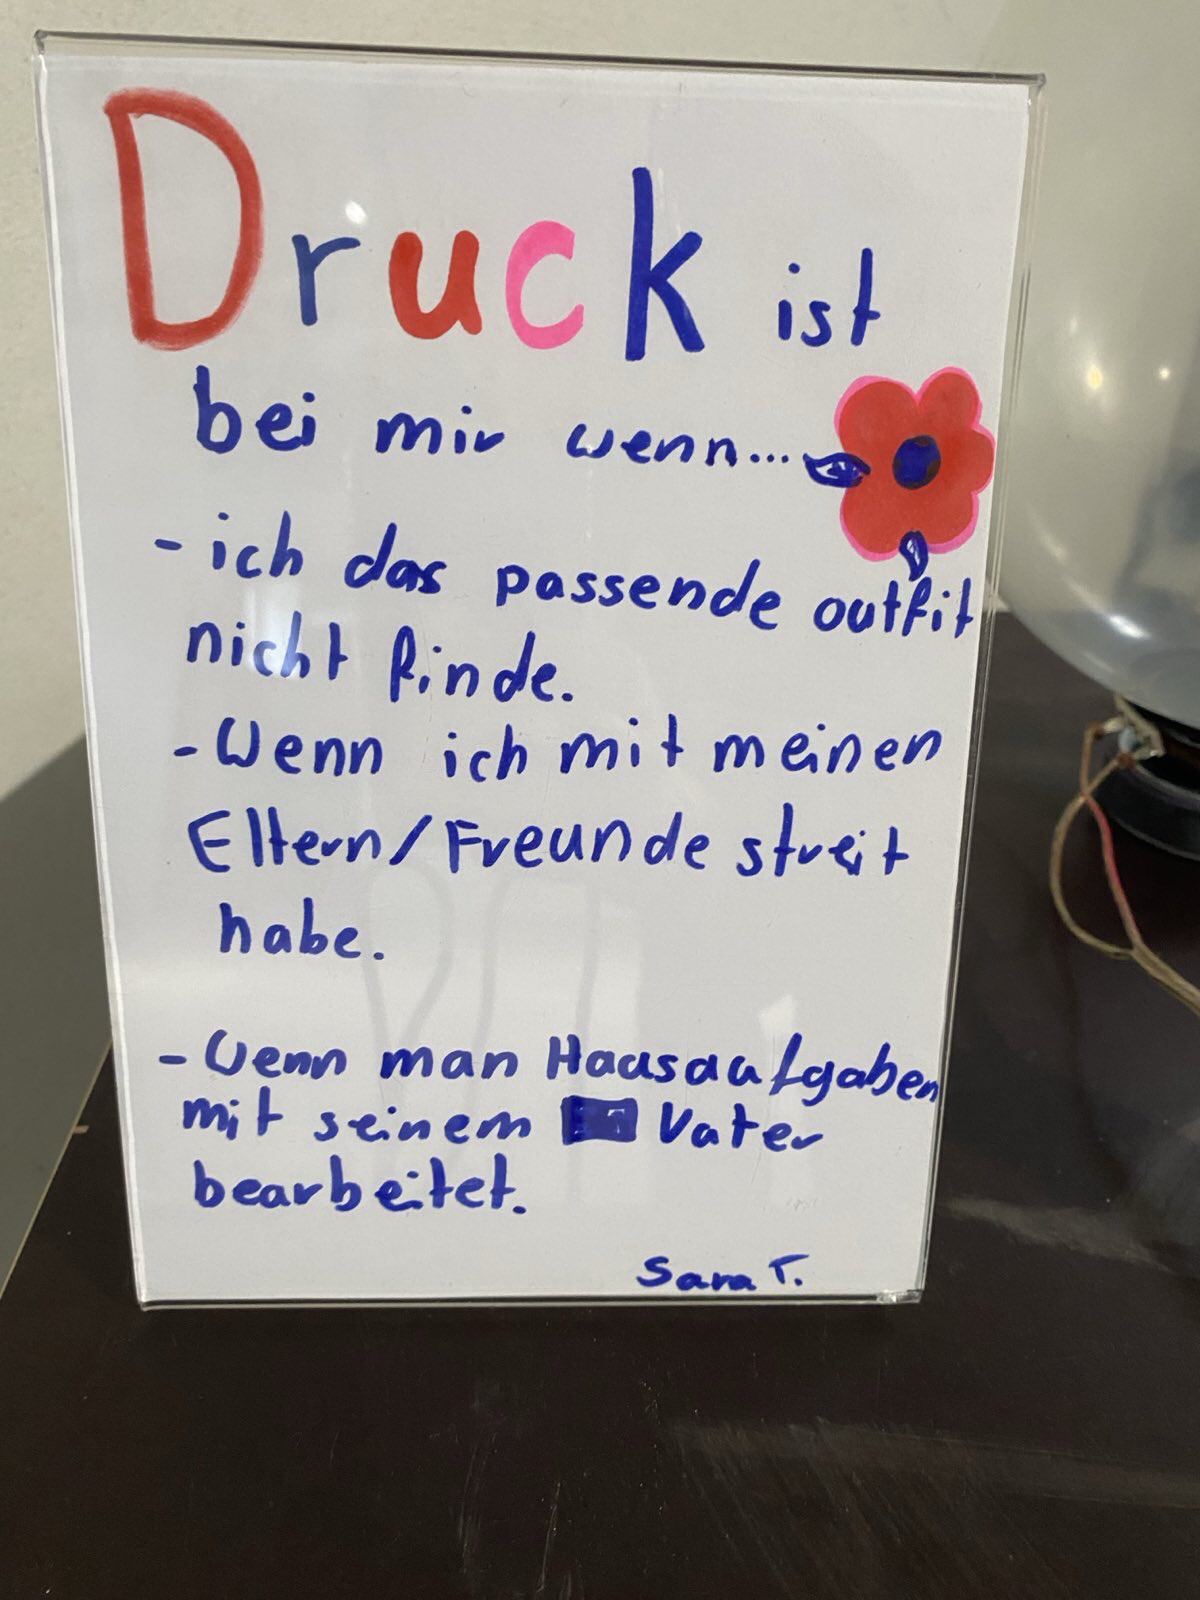 Druck ist
bei mir wenn...
- ich das passende outfit
nicht finde.
- Wenn ich mit meinen
Eltern/Freunde streit
habe.
- Wenn man Hausaufgaben
mit seinem Vater
bearbeitet.
Sara T.